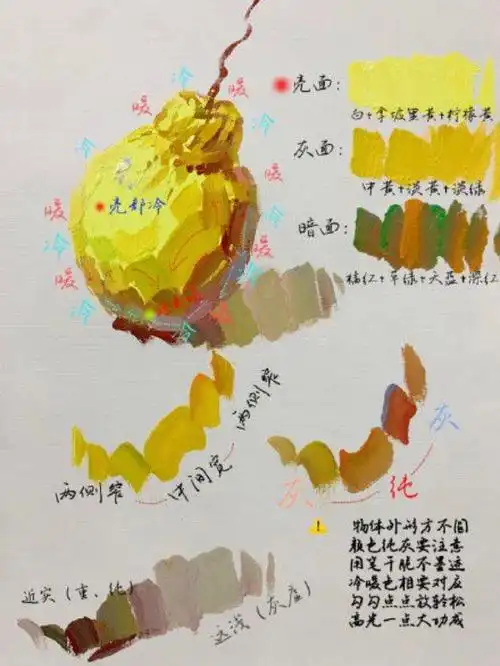 冷
暖
暖
冷
冷
暖
冷
暖
冷
暖
冷
暖
冷
亮部冷
亮面:
白+拿坡里黄+柠檬黄
灰面:
中黄+淡黄+淡绿
暗面:
橘红+草绿+天蓝+深红
两侧窄
中间宽
两侧窄
灰
纯
灰
物体外形方不圆
颜色纯灰要注意
用笔干脆不墨迹
冷暖色相要对应
勾勾点点放轻松
高光一点大功成
近实(重、纯)
远浅(灰虚)